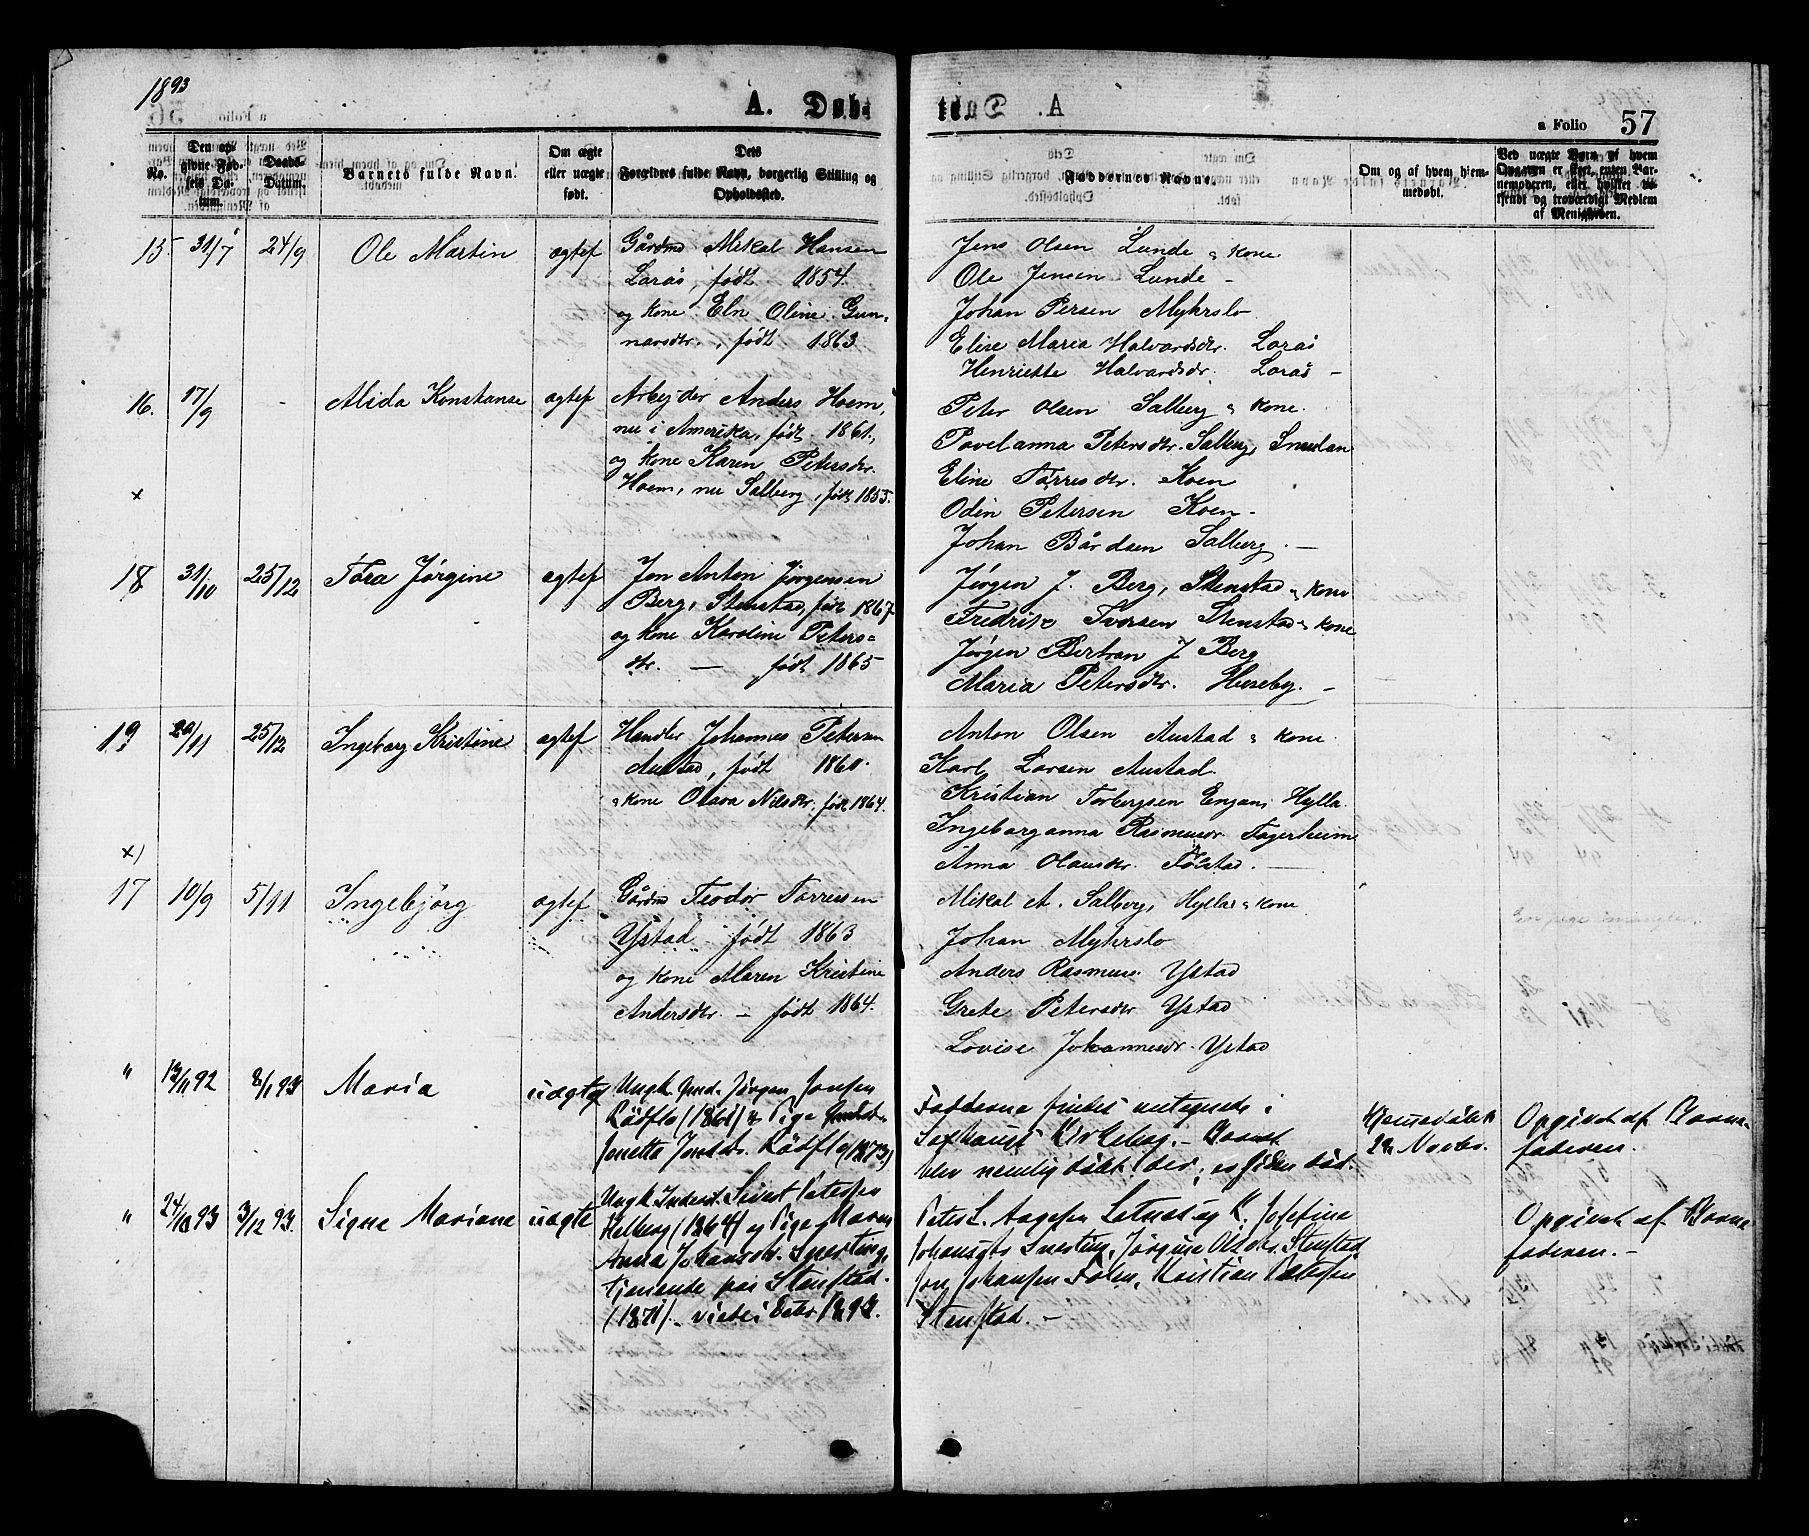 1893
A. Døbt
a Folio 57
No.
Den opgivne Fødsels Datum.
Daabs-Datum.
Barnets fulde Navn.
Om ægte eller uægte født.
Dets Forældres fulde Navn, borgerlig Stilling og Opholdssted.
Faddernes Navne.
Om og af hvem hjemmedøbt.
Ved uægte Børn af hvem Opgaven er skeet, enten Barnemoderen, eller hvilket vitterligt og troværdigt Medlem af Menigheden.
15. 31/7 24/9 Ole Martin egtef
Gårdmd Mikal Hansen
Lorås, født 1854.
og kone Eln Oline Gun-
narsdtr., født 1863
Jens Olsen Lunde & kone
Ole Jensen Lunde -
Johan Persen Myhrslo
Elise Maria Halvardsdr. Lorås
Henriette Halvardsdr. Lorås -
16. 17/9 - Alida Konstanse egtef
Arbejder Anders Hoem,
nu i Amerika, født 1861.,
og kone Karen Petersdtr.
Hoem, nu Salberg, født 1853.
x
Peter Olsen Salberg & kone.
Povelanna Petersdtr. Salberg,
Eline Torresdtr. Koen
Odin Petersen Koen -
Johan Bårdsen Salberg. -
18 31/10 25/12 Tora Jørgine egtef
Jon Anton Jørgensen
Berg, Stenstad, født 1867
og kone Karoline Peters-
dtr. - født 1865
Jørgen J. Berg, Stenstad & kone
Fredrik Torsen Stenstad & kone
Jørgen Bertran J Berg
Maria Petersdtr. Huseby. -
19 29/11 25/12 Ingeborg Kristine egtef
Handler Johannes Petersen
Austad, født 1860.
& kone Olava Nilsdtr. født 1864.
x)
Anton Olsen Austad & kone
Karl Larsen Austad.
Kristian Torbergsen Engan, Hylla.
Ingeborganna Rasmusdr. Fagerheim
Anna Olausdr. Følstad. -
17 10/9 5/11 Ingebjörg egtef
Gårdmd Teodor Torresen
Ystad født 1863
og kone Maren Kristine
Andersdtr. - født 1864.
Mikal A. Salberg, Hylla & kone
Johan Myhrslo
Anders Rasmus. Ystad
Grete Petersdtr Ystad
Lovise Johannesdr. Ystad
" 13/11 92 8/1 93 Maria uægte
Ungk. Indr. Jørgen Jonsen
Rødflo (1861) & Pige
Jonetta Jonsdr. Rødflo (1873)
Fadderne findes antegnede i
Saxhaugs Kirkebog. - Barnet
blev nemlig døbt der, es siden død.
Hjemmedøbt
28 Novbr.
Opgivet af Barne-
faderen.
" 24/10 93 3/12 93. Signe Mariane uægte
Ungk. Indersd. Sivert Petersen
Helberg (1864) og Pige Maren
Anna Johansdr. Snesting,
tjenende paa Stenstad.
(1871). viede i Decbr 1893.
Peter L. Aagesen Letnes og K. Josefine
Johansdtr Snesting, Jørgine Olsdtr. Stenstad
Jon Johansen Følen, Kristian Petersen
Stenstad. -
Opgivet af Barne
faderen. -